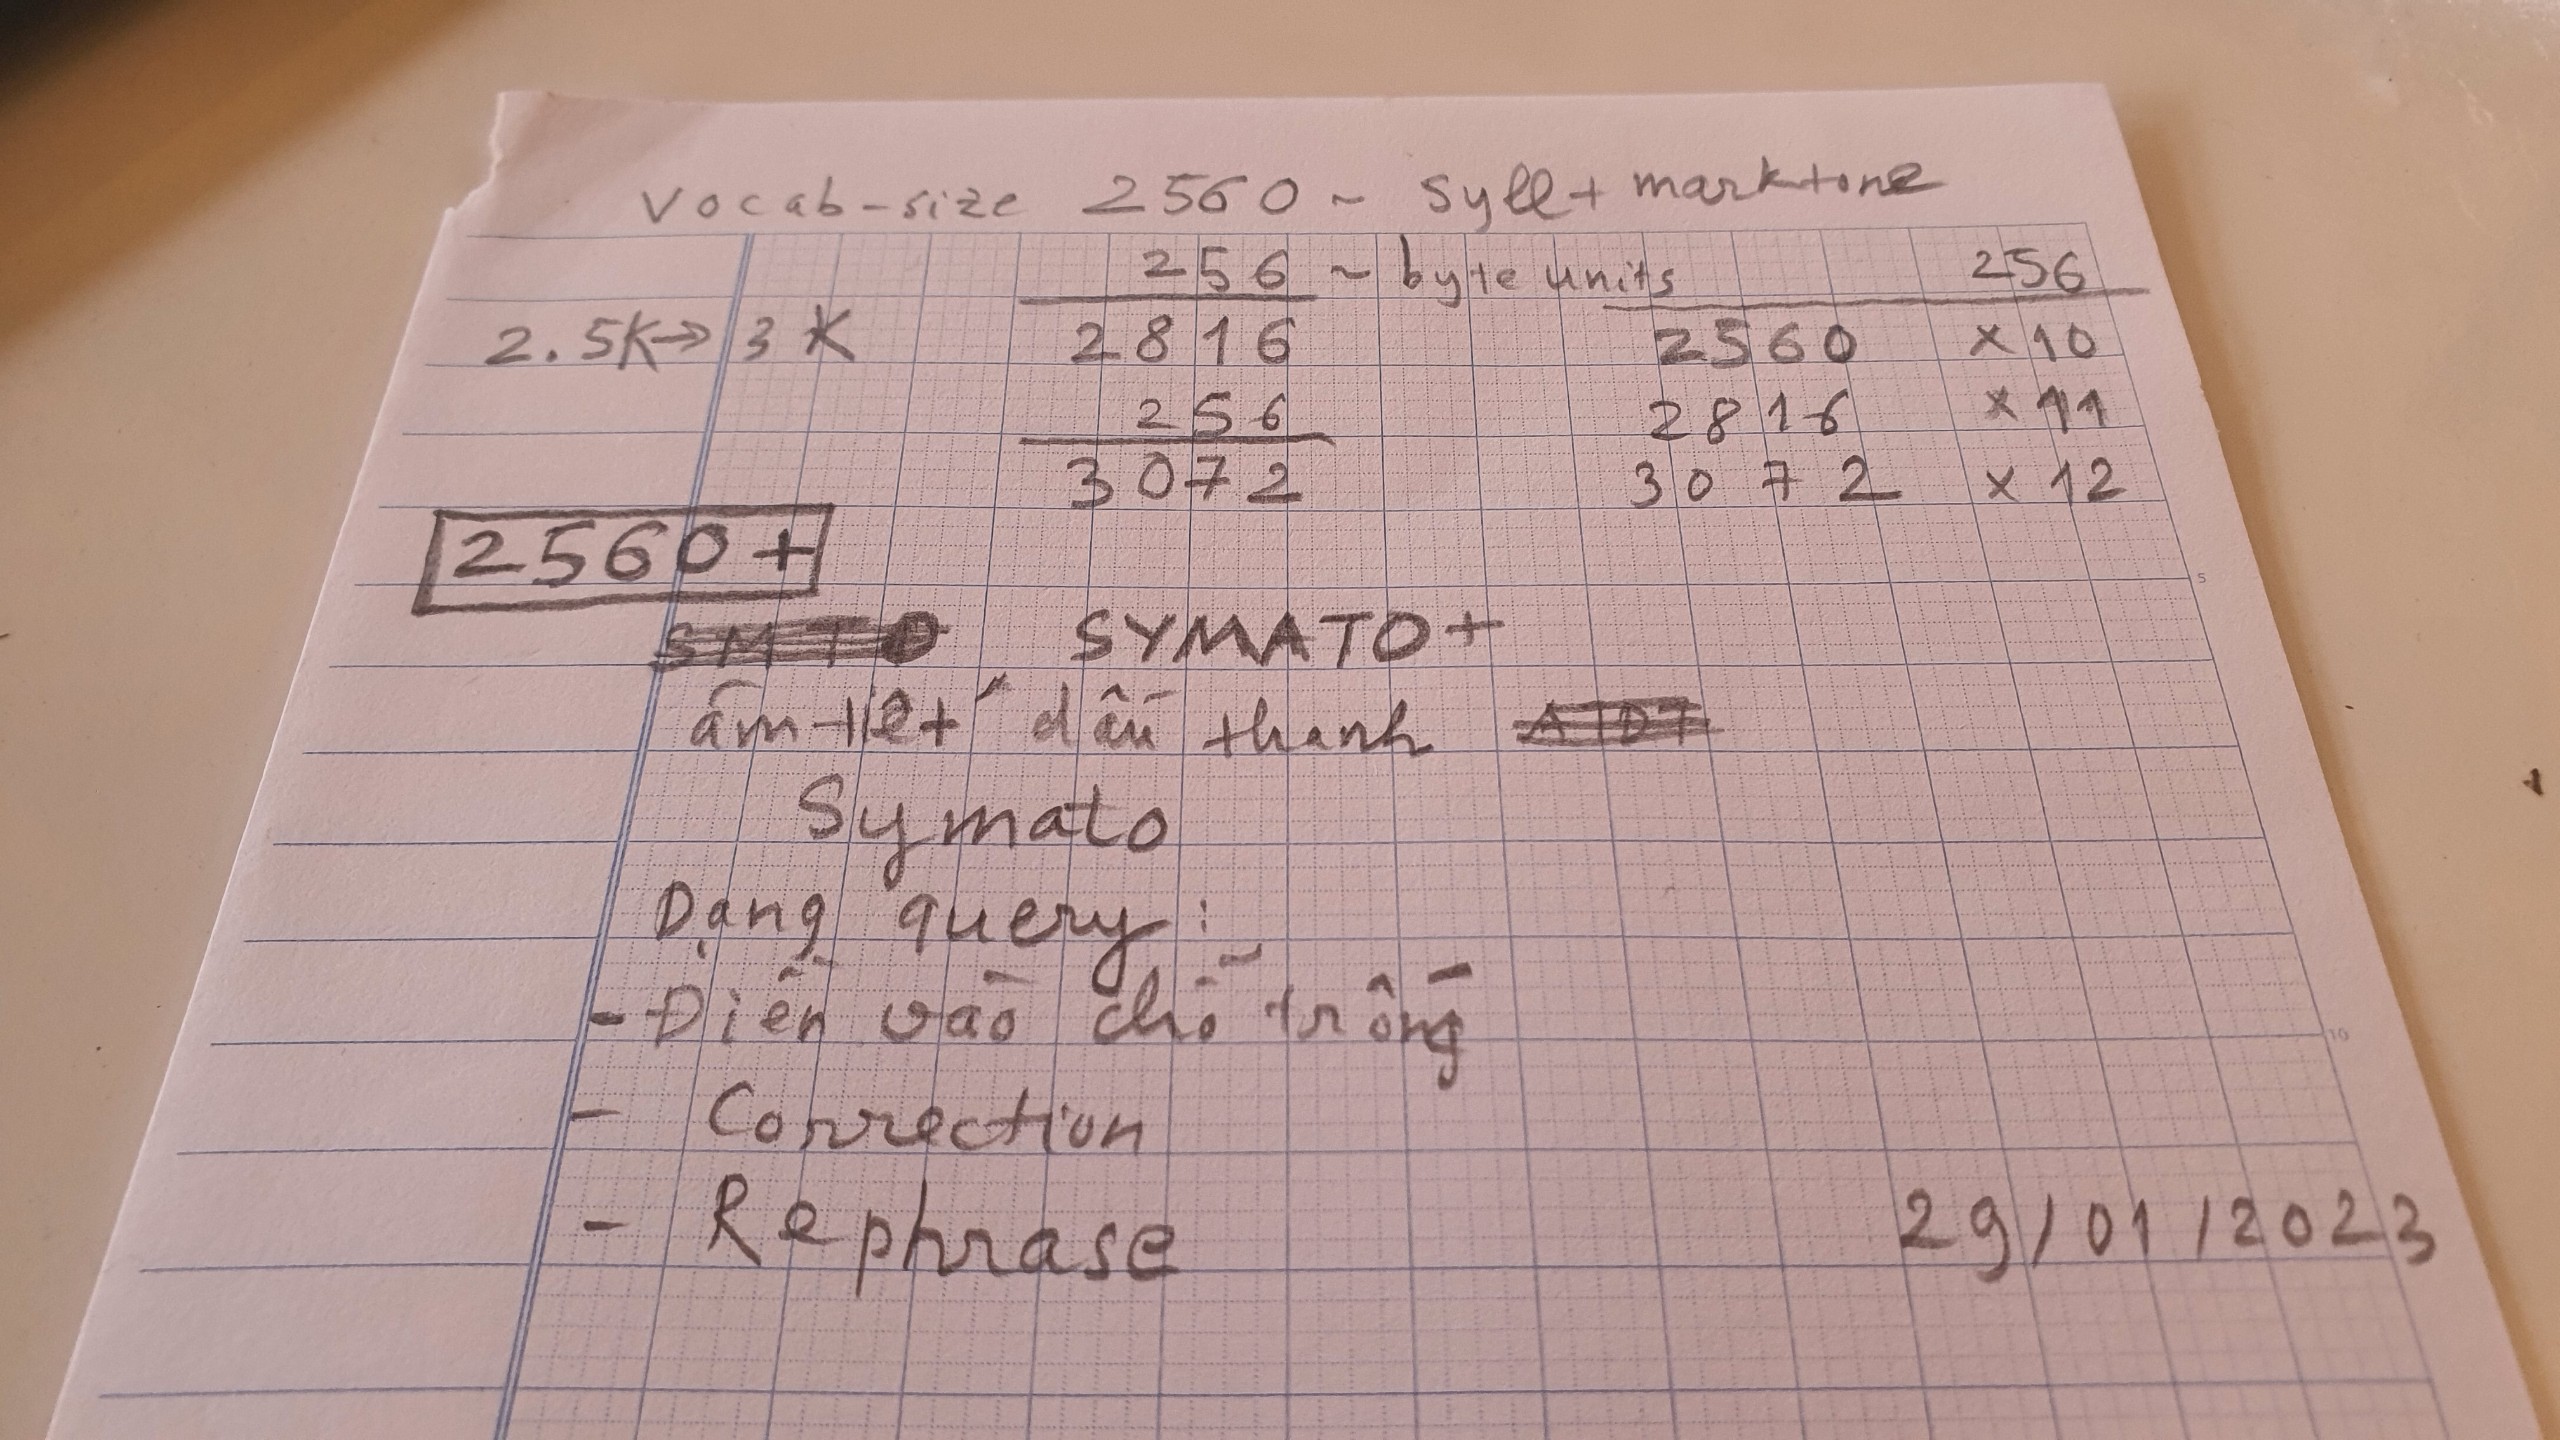 vocab-size 2560 ~ syll+marktone
256 ~ byte units 256
2.5K→3K 2816 2560 x10
256 2816 x11
3072 3072 x12
2560+
SYMATO+
âm tiết dấu thanh
Symato
Dạng query:
- Điền vào chỗ trống
- Correction
- Rephrase
29/01/2023